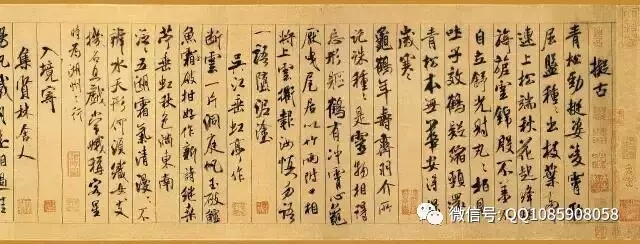 擬古
青松勁挺姿凌霄恥
屈盤種種出枝葉牽
連上松端秋花起絳
煙旖旎雲錦殷不羞不
自立舒光射丸丸柏見
吐子效鶴疑縮頸還
青松本無華安得保
歲寒
龜鶴年壽齊羽介所
託殊種種是靈物相得
忘形軀鶴有沖霄心龜
厭曳尾居以竹兩附口相
將上雲衢報汝慎勿語
一語墮泥塗
吳江垂虹亭作
斷雲一片洞庭帆玉破鱸
魚霜破柑好作新詩繼桑
苧垂虹秋色滿東南
泛泛五湖霜氣清漫漫不
辨水天形何須織女支
機石且戲常娥稱客星
時為湖州之行
入境寄
集賢林舍人
揚帆載月遠相過佳
微信号:QQ1085908058